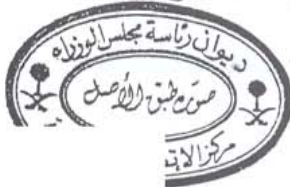 ديوان رئاسة مجلس الوزراء
صورة طبق الأصل
مركز